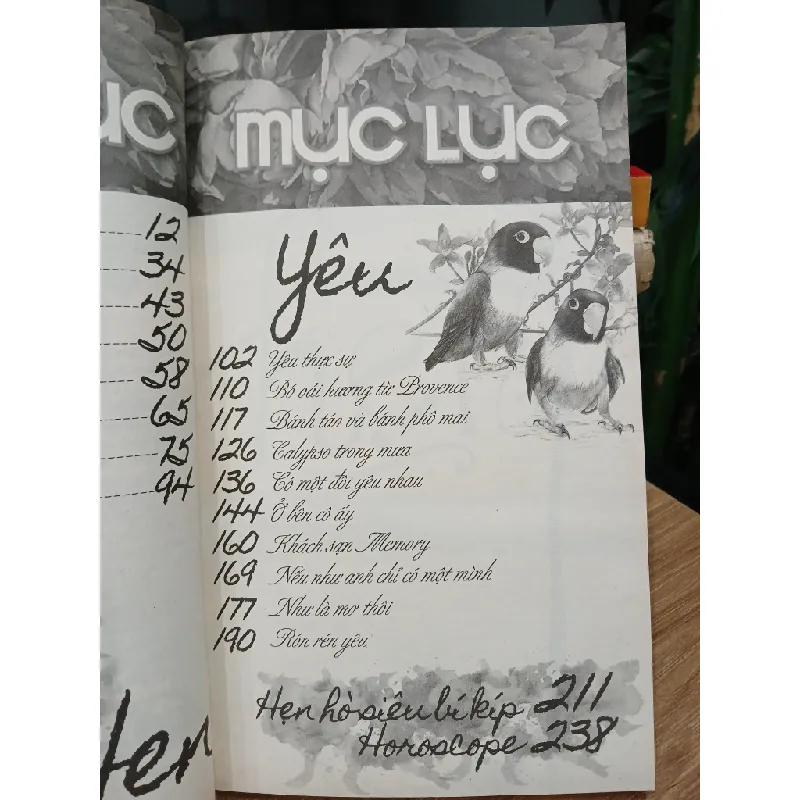 ục
12
34
43
50
58
65
75
94
Mục Lục
Yêu
102 Yêu thực sự
110 Bó oải hương từ Provence
117 Bánh táo và bánh phô mai
126 Calypso trong mưa
136 Có một đôi yêu nhau
144 Ở bên cô ấy
160 Khách sạn Memory
169 Nếu như anh chỉ có một mình
177 Như là mơ thôi
190 Rón rén yêu
Hẹn hò siêu bí kíp 211
Horoscope 238